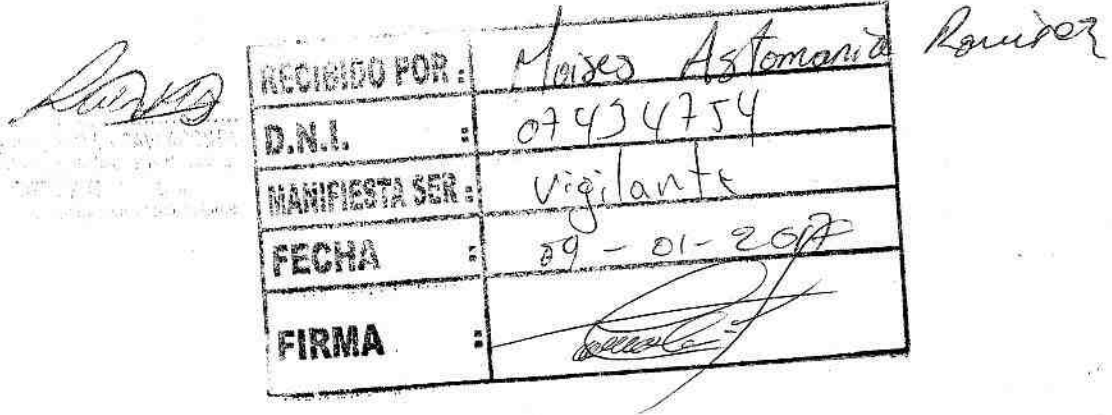 RECIBIDO POR : Moises Astomania Ramirez
D.N.I. : 07434754
MANIFIESTA SER : Vigilante
FECHA : 09 - 01 - 2017
FIRMA :